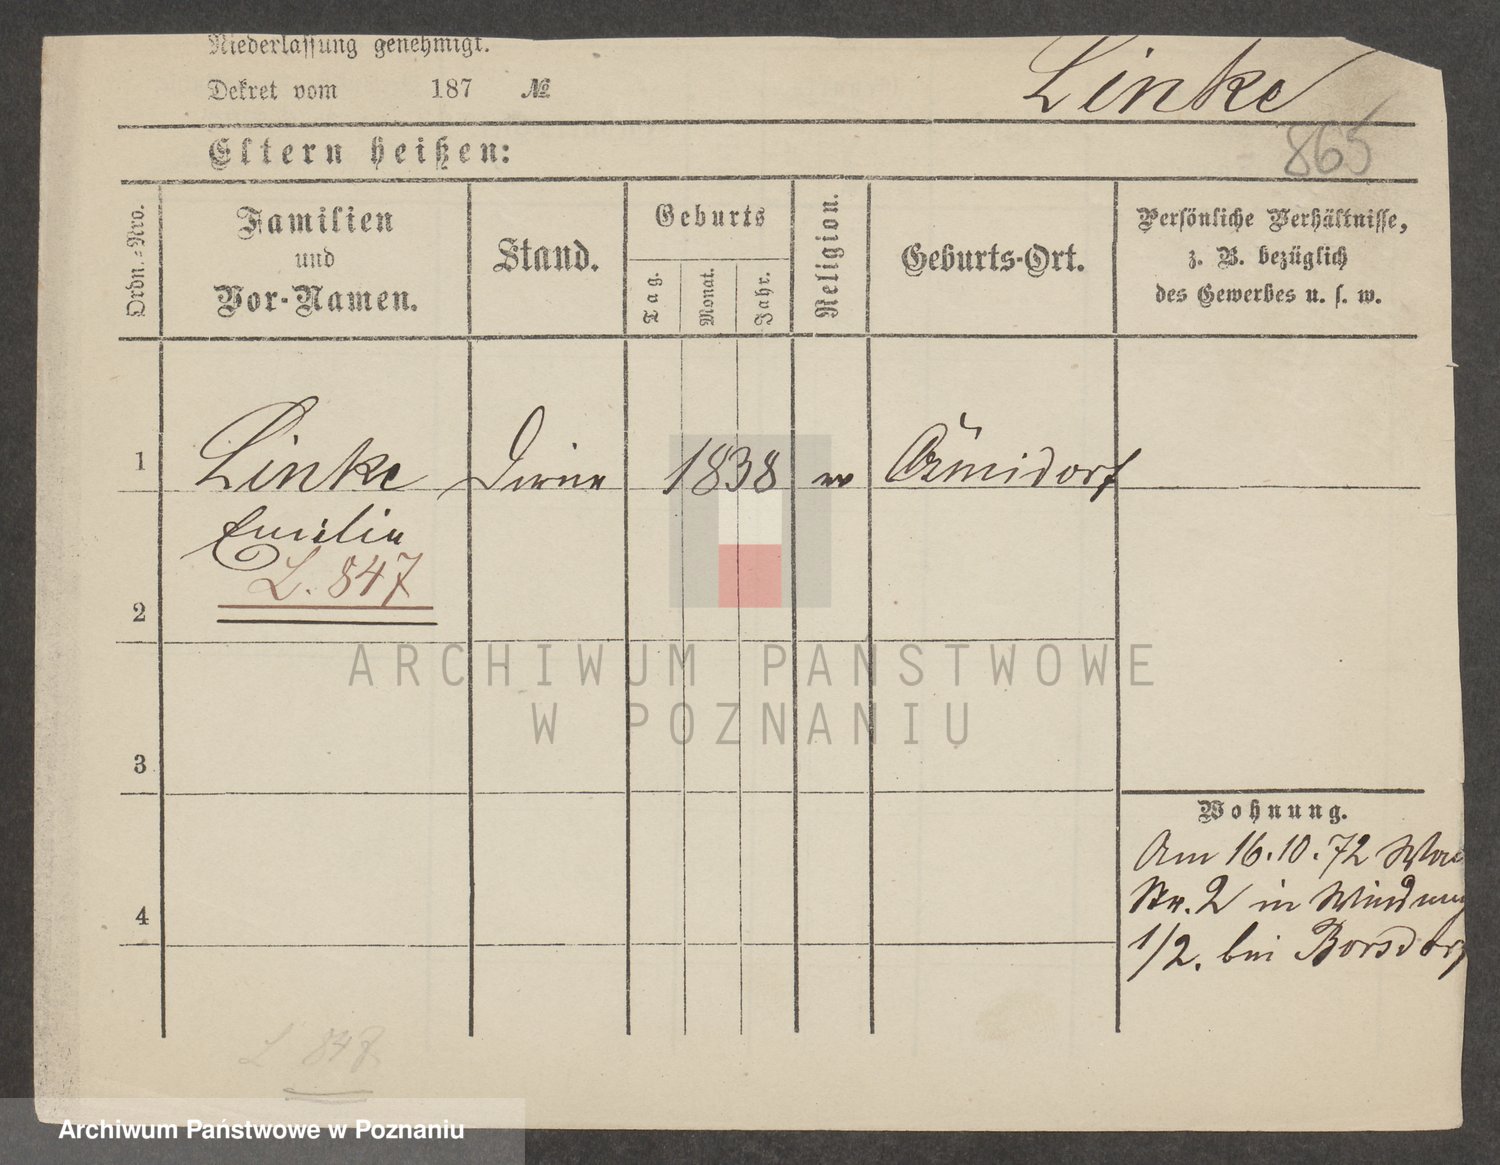 Niederlassung genehmigt.
Dekret vom 187 №
Linke
865
Eltern heißen:
Ordn.-Nro.
Familien
und
Vor-Namen.
Stand.
Geburts
Tag.
Monat.
Jahr.
Religion.
Geburts-Ort.
Persönliche Verhältnisse,
z. B. bezüglich
des Gewerbes u. s. w.
1
Linke
1838
Emilie
L. 847
2
3
4
Wohnung.
Am 16.10.72
Nr. 2 in
1/2. bei Borsdorf
L 847
ARCHIWUM PAŃSTWOWE
W POZNANIU
Archiwum Państwowe w Poznaniu